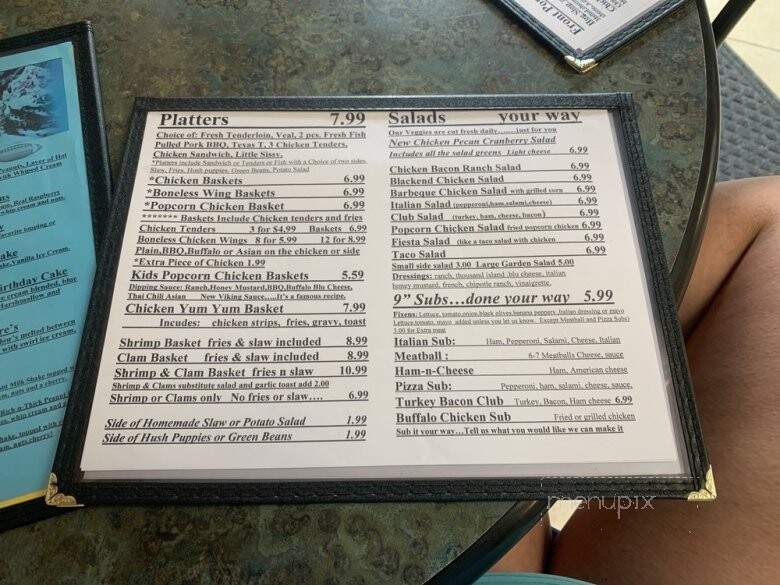 Platters 7.99
Choice of: Fresh Tenderloin, Veal, 2 pcs. Fresh Fish
Pulled Pork BBQ, Texas T, 3 Chicken Tenders,
Chicken Sandwich, Little Sissy,
*Platters include Sandwich or Tenders or Fish with a Choice of two sides.
Slaw, Fries, Hush puppies, Green Beans, Potato Salad
*Chicken Baskets 6.99
*Boneless Wing Baskets 6.99
*Popcorn Chicken Basket 6.99
******* Baskets Include Chicken tenders and fries
Chicken Tenders 3 for $4.99 Baskets 6.99
Boneless Chicken Wings 8 for 5.99 12 for 8.99
Plain,BBQ,Buffalo or Asian on the chicken or side
*Extra Piece of Chicken 1.99
Kids Popcorn Chicken Baskets 5.59
Dipping Sauce: Ranch,Honey Mustard,BBQ,Buffalo Blu Cheese,
Thai Chili Asian New Viking Sauce.....It's a famous recipe.
Chicken Yum Yum Basket 7.99
Incudes: chicken strips, fries, gravy, toast
Shrimp Basket fries & slaw included 8.99
Clam Basket fries & slaw included 8.99
Shrimp & Clam Basket fries n slaw 10.99
Shrimp & Clams substitute salad and garlic toast add 2.00
Shrimp or Clams only No fries or slaw.... 6.99
Side of Homemade Slaw or Potato Salad 1.99
Side of Hush Puppies or Green Beans 1.99
Salads your way
Our Veggies are cut fresh daily.......just for you
New Chicken Pecan Cranberry Salad
Includes all the salad greens Light cheese 6.99
Chicken Bacon Ranch Salad 6.99
Blackend Chicken Salad 6.99
Barbeque Chicken Salad with grilled corn 6.99
Italian Salad (pepperoni,ham,salami,cheese) 6.99
Club Salad (turkey, ham, cheese, bacon) 6.99
Popcorn Chicken Salad fried popcorn chicken 6.99
Fiesta Salad (like a taco salad with chicken 6.99
Taco Salad 6.99
Small side salad 3.00 Large Garden Salad 5.00
Dressings: ranch, thousand island ,blu cheese, italian
honey mustard, french, chipotle ranch, vinaigrette,
9" Subs...done your way 5.99
Fixens: Lettuce, tomato,onion,black olives,banana peppers Italian dressing or mayo
Lettuce,tomato, mayo added unless you let us know. Except Meatball and Pizza Subs)
3.00 for Extra meat
Italian Sub: Ham, Pepperoni, Salami, Cheese, Italian
Meatball : 6-7 Meatballs Cheese, sauce
Ham-n-Cheese Ham, American cheese
Pizza Sub: Pepperoni, ham, salami, cheese, sauce,
Turkey Bacon Club Turkey, Bacon, Ham cheese 6.99
Buffalo Chicken Sub Fried or grilled chicken
Sub it your way...Tell us what you would like we can make it
menupix